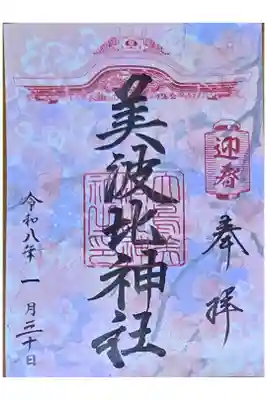 迎春
奉拝
美波比神社
令和八年一月三十日